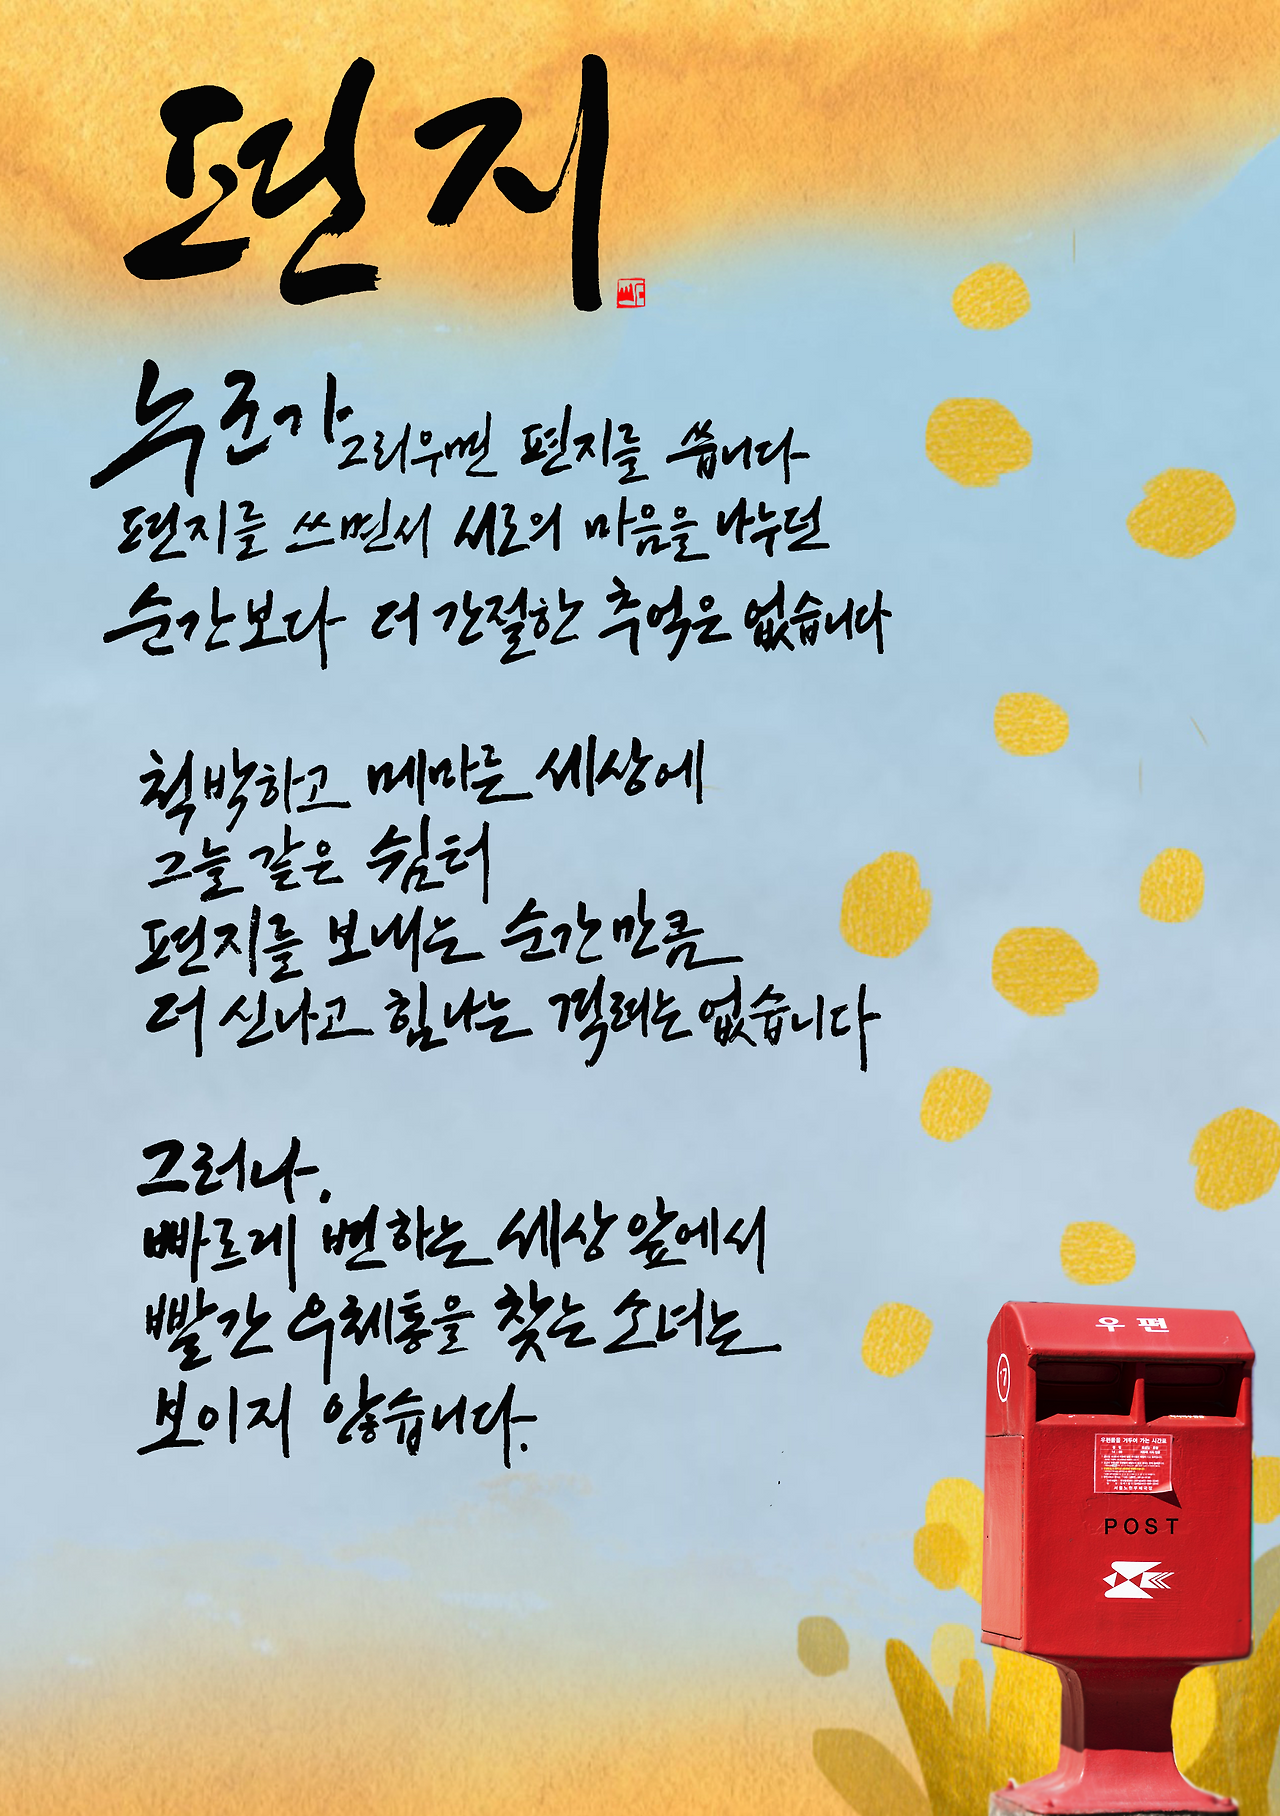 편지
누군가 그리우면 편지를 씁니다
편지를 쓰면서 서로의 마음을 나누던
순간보다 더 간절한 추억은 없습니다
척박하고 메마른 세상에
그늘 같은 쉼터
편지를 보내는 순간만큼
더 신나고 힘나는 격려는 없습니다
그러나,
빠르게 변하는 세상 앞에서
빨간 우체통을 찾는 소녀는
보이지 않습니다.
우편
7
우편물을 거두어 가는 시간표
POST